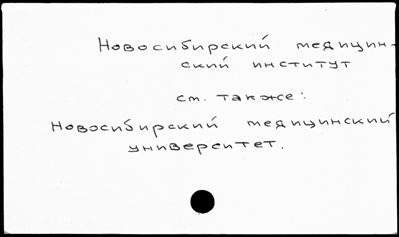 Новосибирский медицин-
ский институт
см. также:
Новосибирский медицинский
университет.